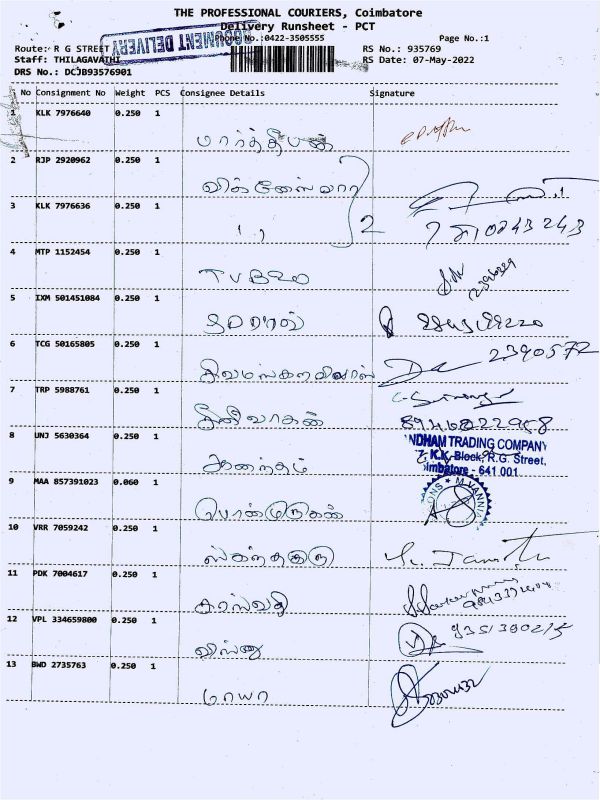 THE PROFESSIONAL COURIERS, Coimbatore
Delivery Runsheet - PCT
DOCUMENT DELIVERY
Phone No.:0422-3505555
Page No.:1
Route: R G STREET
RS No.: 935769
Staff: THILAGAVATHI
RS Date: 07-May-2022
DRS No.: DCJB93576901
No Consignment No Weight PCS Consignee Details Signature
1 KLK 7976640 0.250 1
பார்த்தீபன்
2 RJP 2920962 0.250 1
விக்னேஸ்வரா
3 KLK 7976636 0.250 1
, , 2
4 MTP 1152454 0.250 1
TVB20
5 IXM 501451084 0.250 1
6 TCG 50165805 0.250 1
சிவமங்களவிலாஸ் 2390577
7 TRP 5988761 0.250 1
ஸ்ரீனிவாசன்
8 UNJ 5630364 0.250 1
NDHAM TRADING COMPANY
K.K. Block, R.G. Street,
imbatore - 641 001
ஆனந்தம்
9 MAA 857391023 0.060 1
பொன்முருகன்
10 VRR 7059242 0.250 1
ஸ்கந்தகுரு
11 PDK 7004617 0.250 1
சரஸ்வதி
12 VPL 334659800 0.250 1
விஷ்ணு
13 BWD 2735763 0.250 1
மாயா